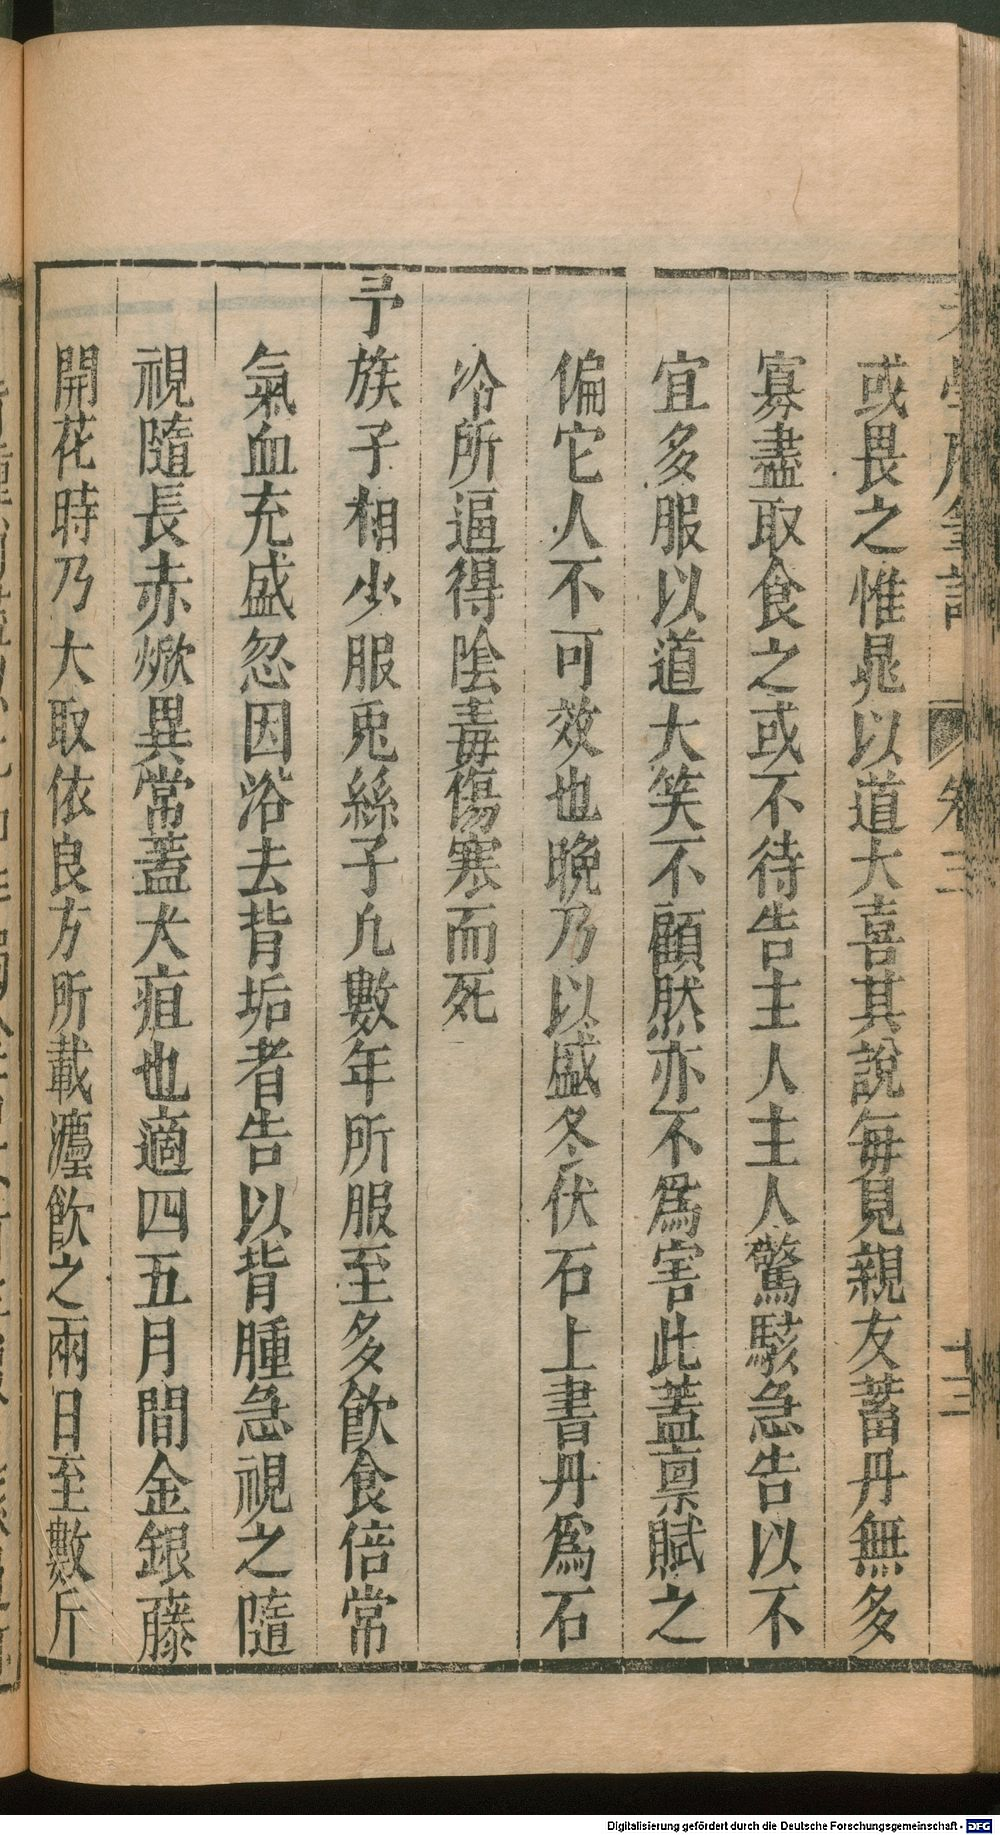 或畏之惟晁以道大喜其說每見親友蓄丹無多
寡盡取食之或不待告主人主人驚駭急告以不
宜多服以道大笑不顧然亦不爲害此蓋稟賦之
偏它人不可效也晚乃以盛冬伏石上書丹爲石
冷所逼得陰毒傷寒而死
予族子相少服兎絲子凡數年所服至多飮食倍常
氣血充盛忽因浴去背垢者告以背腫急視之隨
視隨長赤焮異常蓋大疽也適四五月間金銀藤
開花時乃大取依良方所載漬飮之兩日至數斤
卷三
十三
Digitalisierung gefördert durch die Deutsche Forschungsgemeinschaft - DFG